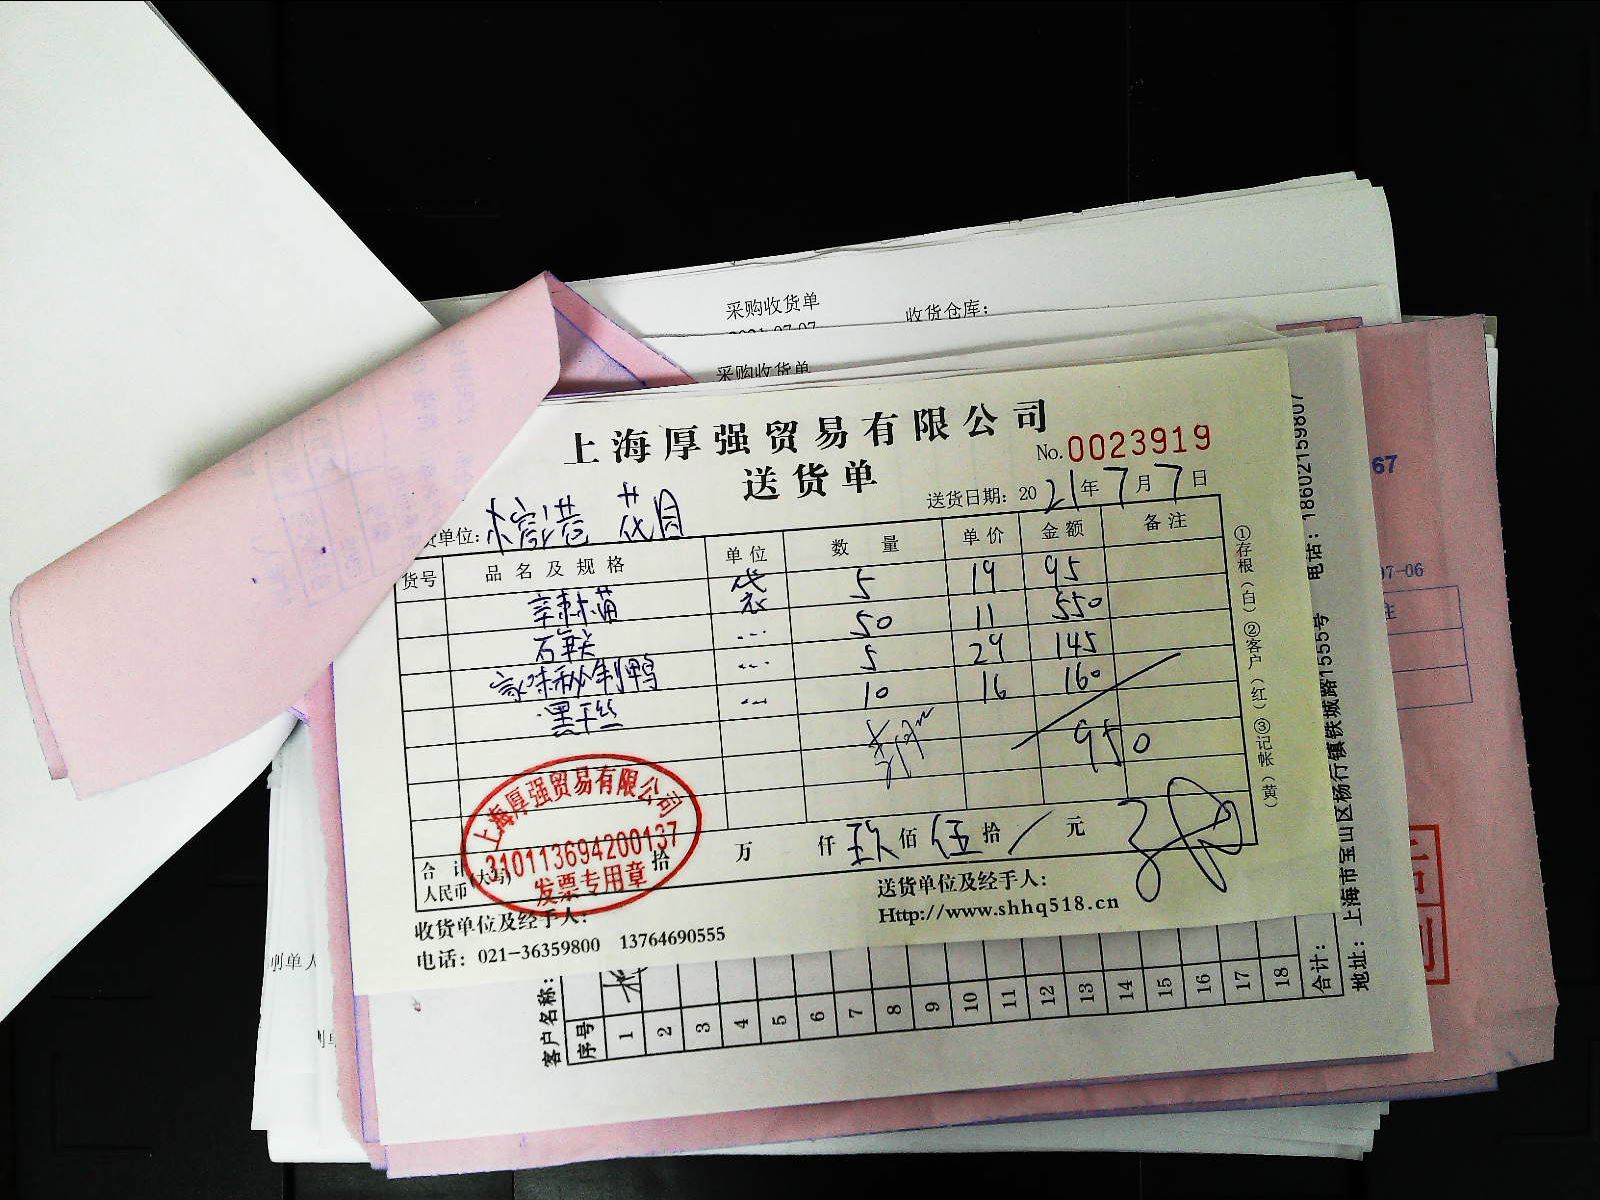 采购收货单
收货仓库：
采购收货单
上海厚强贸易有限公司
No.0023919
送货单
送货日期：2021年7月7日
货单位：
货号 品名及规格 单位 数量 单价 金额 备注
辛辣 袋 5 19 95
50 11 550
秘制鸭 5 29 145
黑干丝 10 16 160
950
合计人民币(大写) 拾 万 仟 玖 佰 伍 拾 / 元
上海厚强贸易有限公司
310113694200137
发票专用章
收货单位及经手人：
送货单位及经手人：
Http://www.shhq518.cn
电话：021-36359800 13764690555
①存根（白）②客户（红）③记帐（黄）
电话：18602159807
地址：上海市宝山区杨行镇铁城路1555号
67
07-06
制单人
客户名称：
序号 1 2 3 4 5 6 7 8 9 10 11 12 13 14 15 16 17 18 合计：